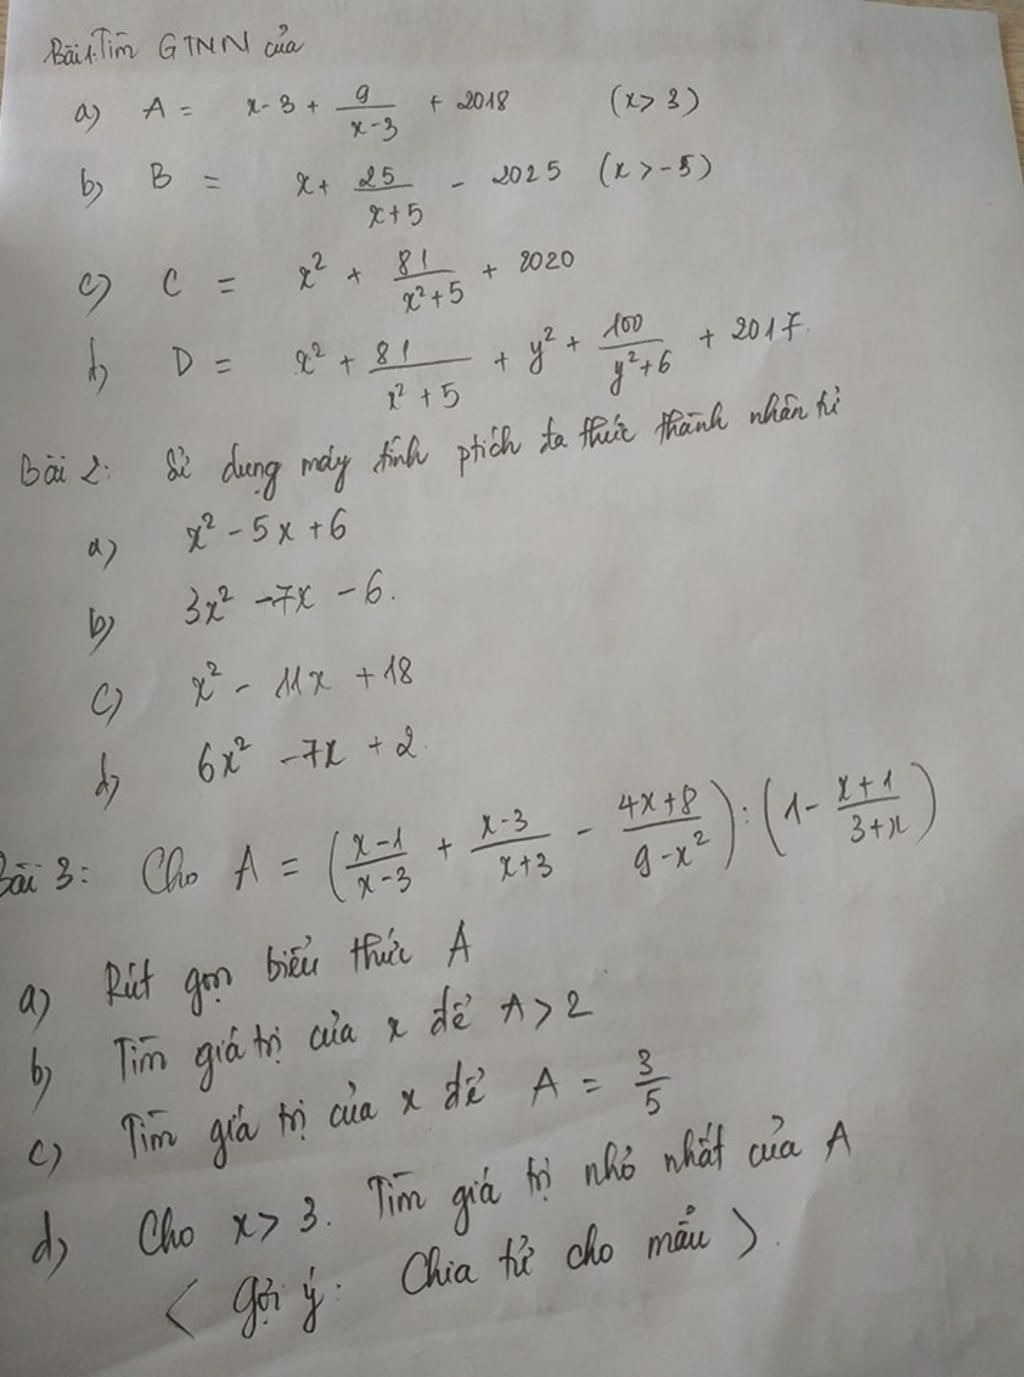 Bài 1: Tìm GTNN của
a) A = x - 3 + 9/(x-3) + 2018 (x > 3)
b) B = x + 25/(x+5) - 2025 (x > -5)
c) C = x² + 81/(x²+5) + 2020
d) D = x² + 81/(x²+5) + y² + 100/(y²+6) + 2017.
Bài 2: Sử dụng máy tính ptích đa thức thành nhân tử
a) x² - 5x + 6
b) 3x² - 7x - 6.
c) x² - 11x + 18
d) 6x² - 7x + 2.
Bài 3: Cho A = ((x-1)/(x-3) + (x-3)/(x+3) - (4x+8)/(9-x²)) : (1 - (x+1)/(3+x))
a) Rút gọn biểu thức A
b) Tìm giá trị của x để A > 2
c) Tìm giá trị của x để A = 3/5
d) Cho x > 3. Tìm giá trị nhỏ nhất của A
< Gợi ý: Chia tử cho mẫu >.